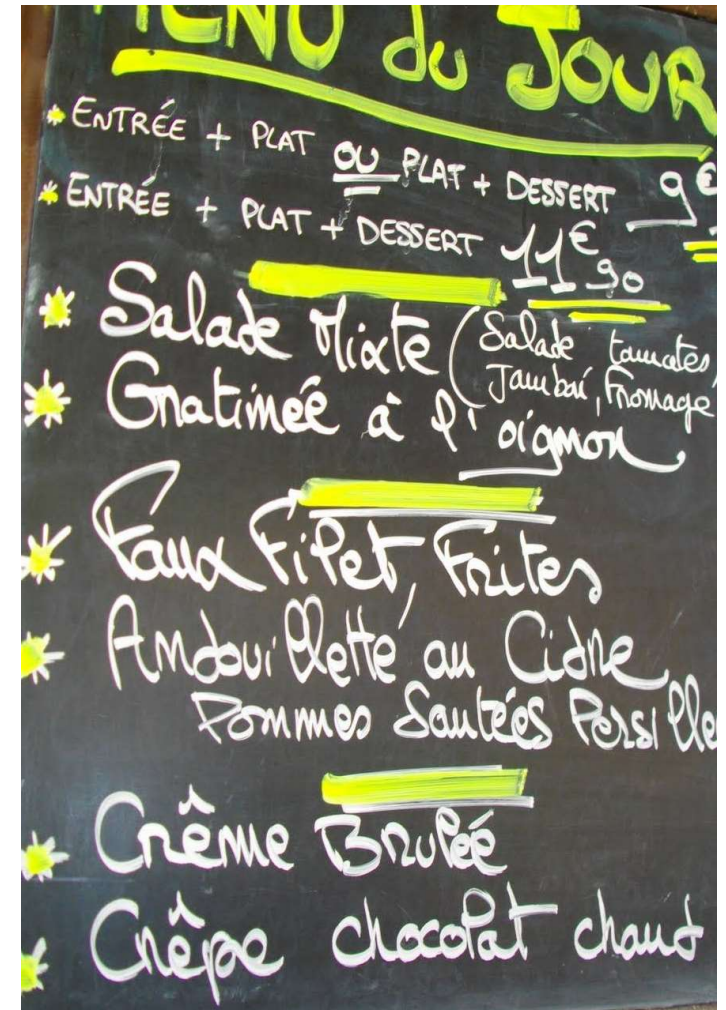 MENU du JOUR
* ENTRÉE + PLAT OU PLAT + DESSERT 9€
* ENTRÉE + PLAT + DESSERT 11€90
* Salade Mixte (Salade tomates,
Jambon, Fromage
* Gratinée à l'oignon
* Faux Filet, Frites
* Andouillette au Cidre
Pommes Sautées Persillé
* Crême Brulée
* Crêpe chocolat chaud